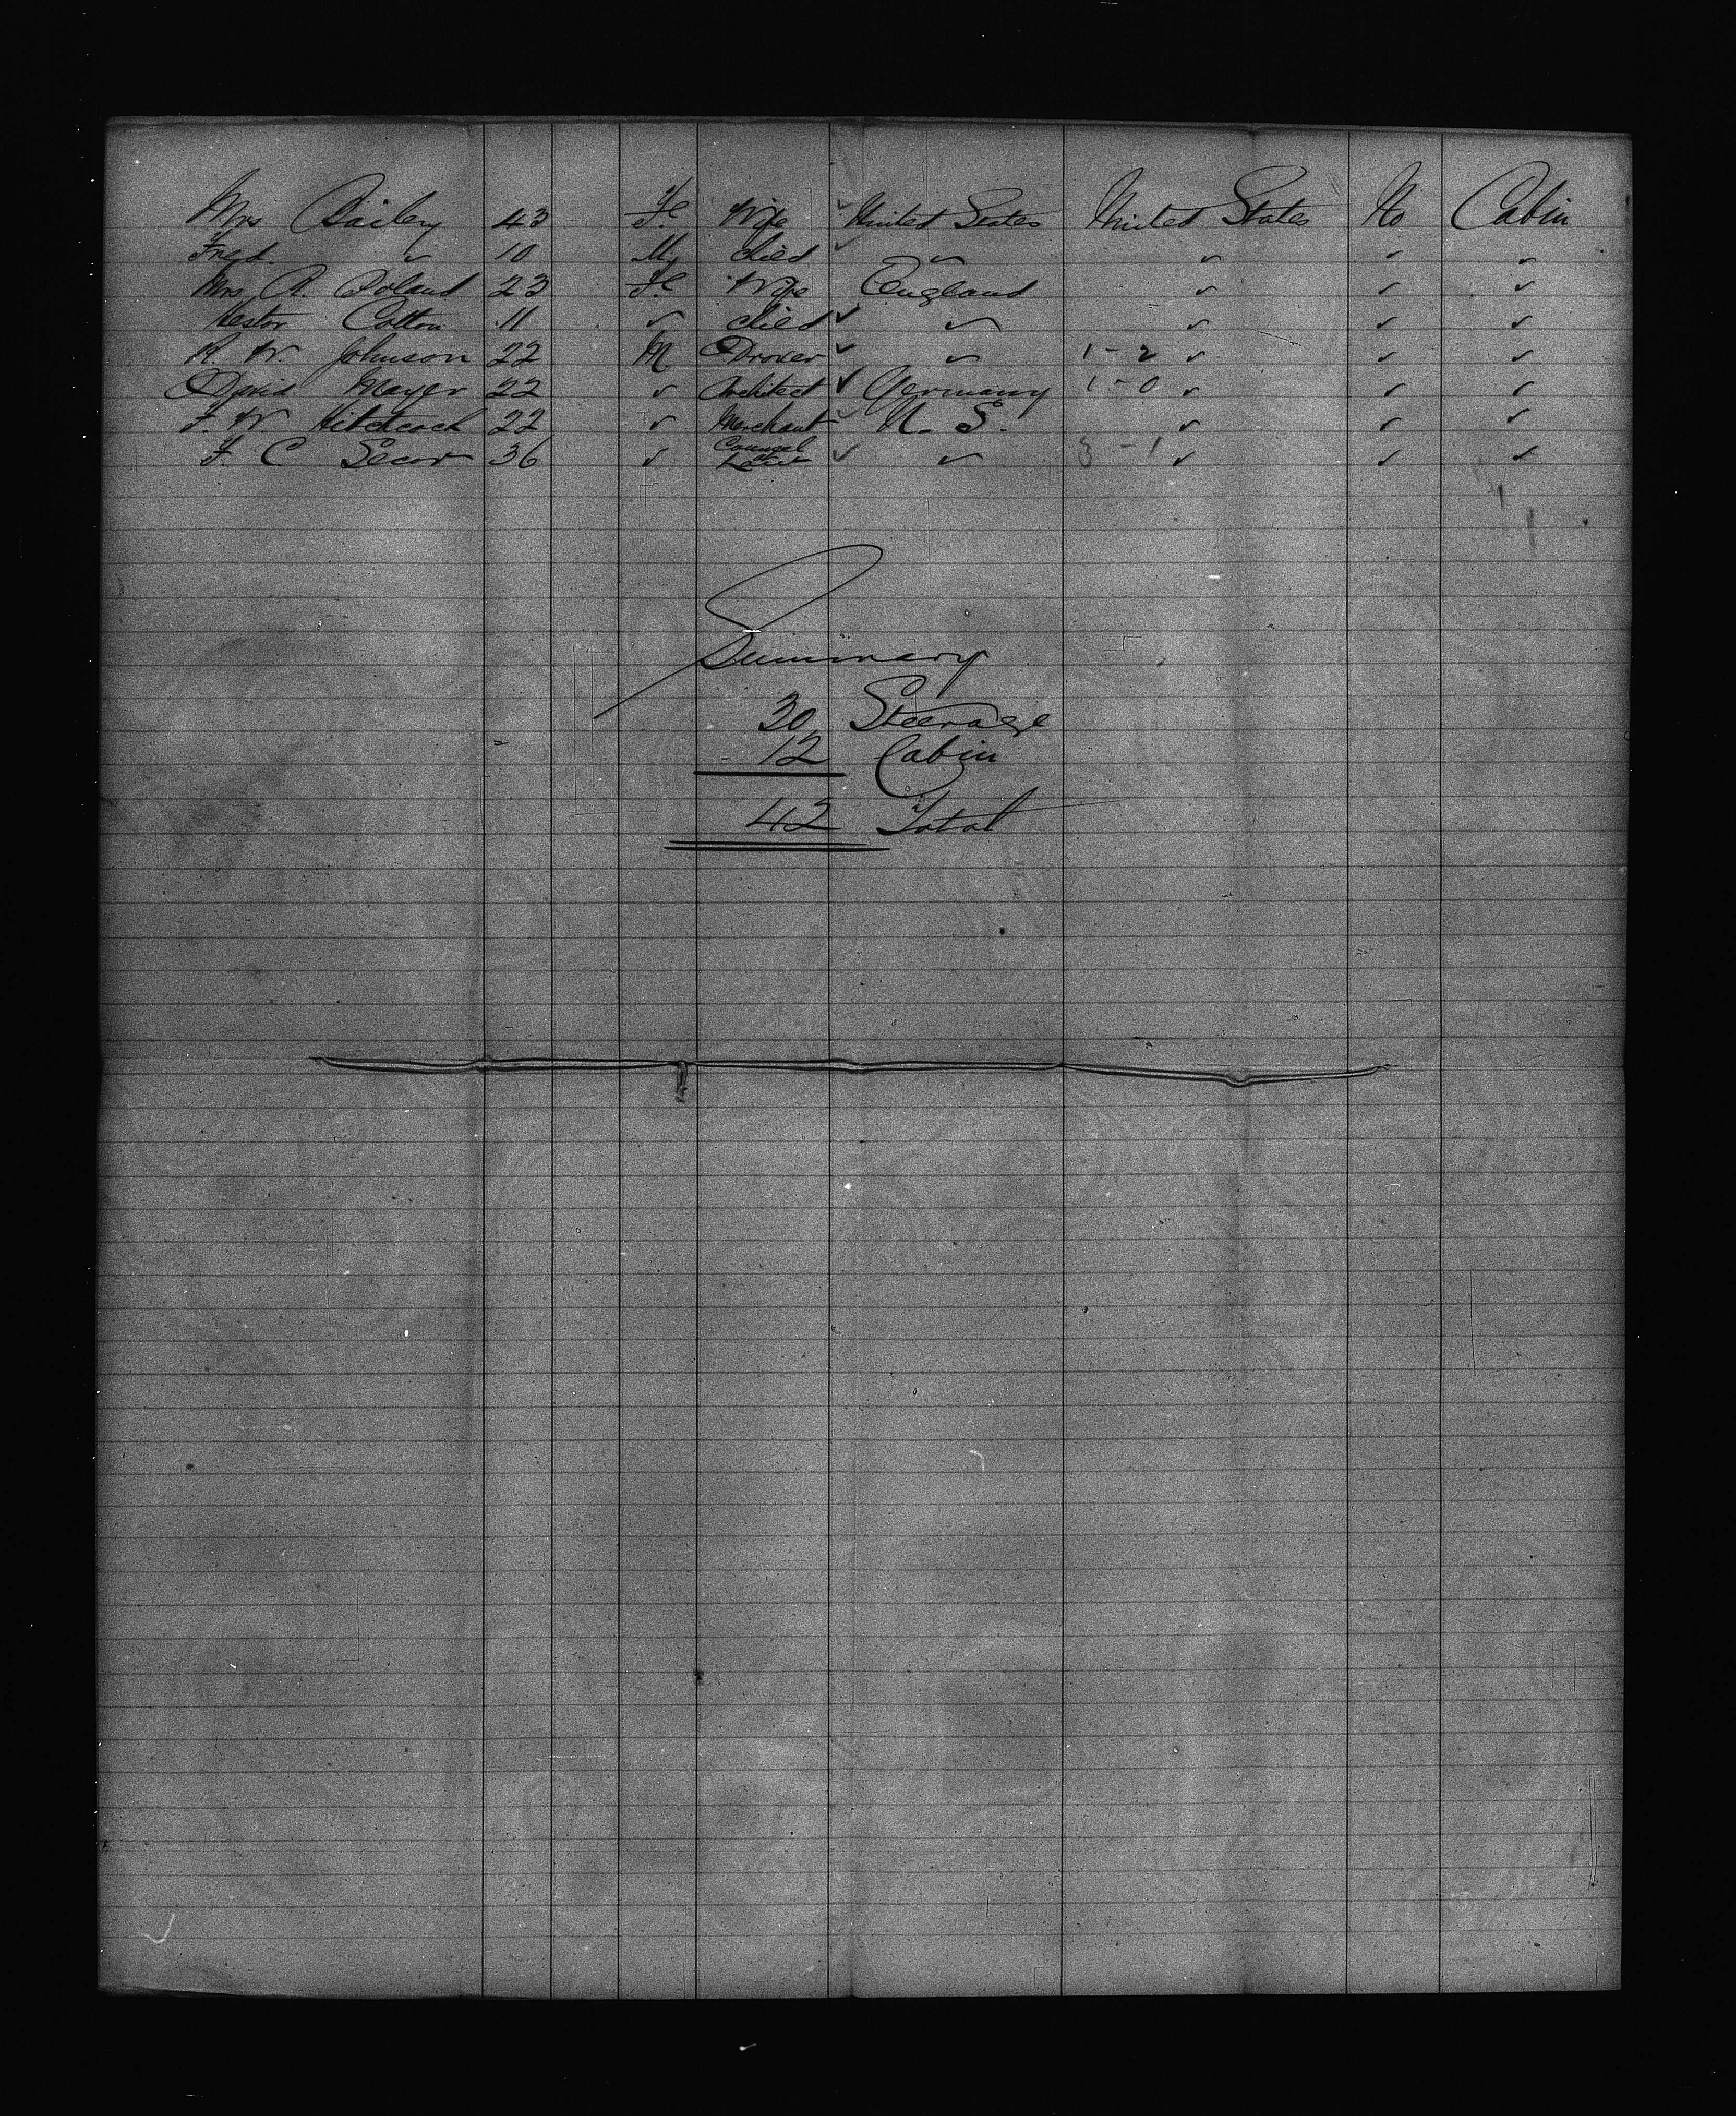 Mrs Bailey 43 Fe Wife ✓ United States United States No Cabin
Fred " 10 M child ✓ " " " "
Mrs A. Boland 23 Fe Wife England " " "
Hestor Cotton 11 " child ✓ " " " "
R. W. Johnson 22 M Drover ✓ " 1-2 " " "
David Mayer 22 " Architect ✓ Germany 1-0 " " "
F. W Hitchcock 22 " Merchant ✓ U. S. " " "
F. C Secor 36 " Counsel ✓ " 3-1 " " "
Summary
30 Steerage
12 Cabin
42 Total